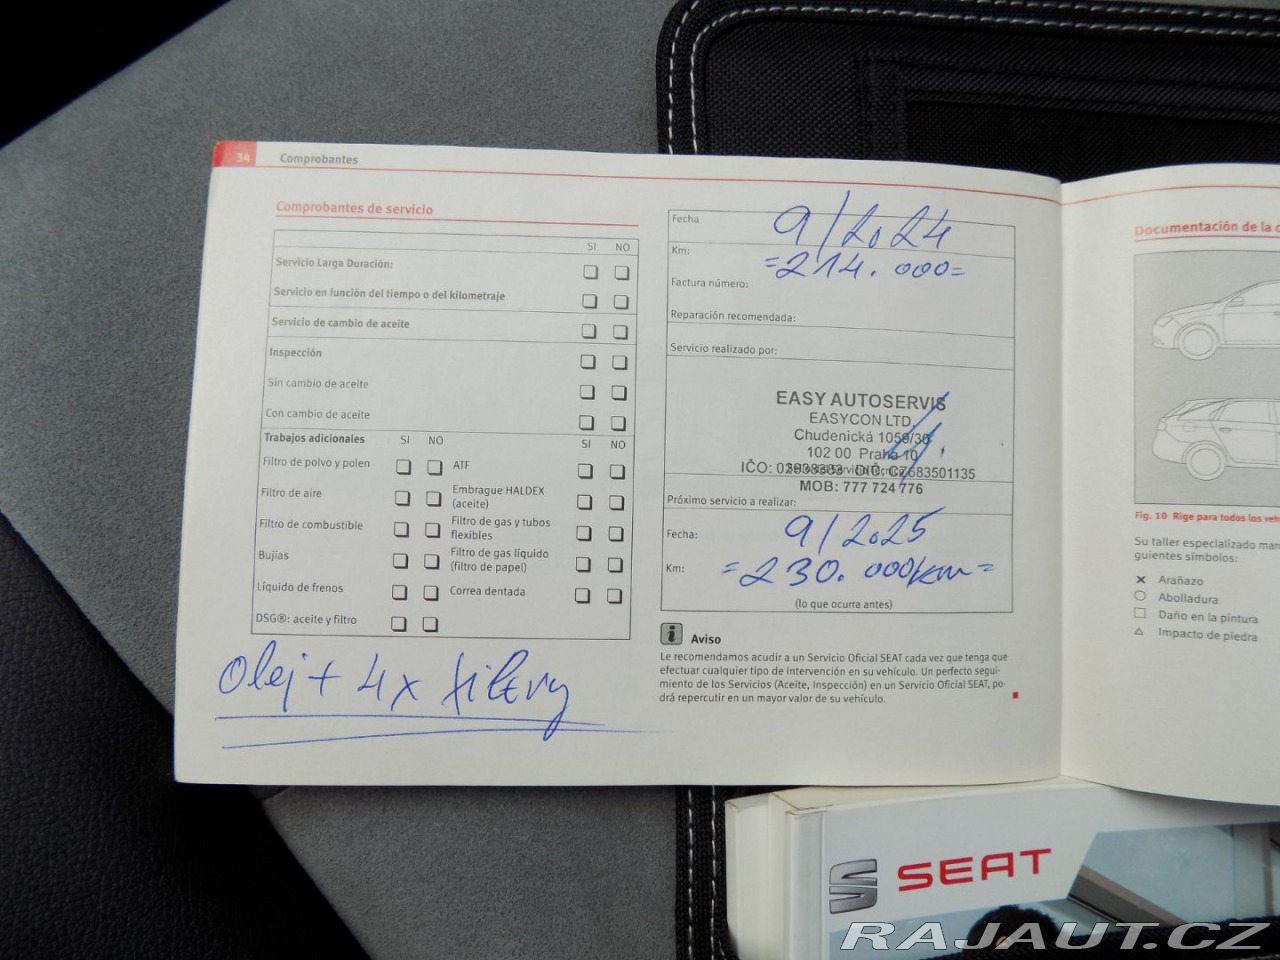 34 Comprobantes
Comprobantes de servicio
SI NO
Servicio Larga Duración:
Servicio en función del tiempo o del kilometraje
Servicio de cambio de aceite
Inspección
Sin cambio de aceite
Con cambio de aceite
Trabajos adicionales SI NO SI NO
Filtro de polvo y polen ATF
Filtro de aire Embrague HALDEX
(aceite)
Filtro de combustible Filtro de gas y tubos
flexibles
Bujías Filtro de gas líquido
(filtro de papel)
Líquido de frenos Correa dentada
DSG®: aceite y filtro
Olej + 4x filtry
Fecha 9/2024
Km: =214.000=
Factura número:
Reparación recomendada:
Servicio realizado por:
EASY AUTOSERVIS
EASYCON LTD.
Chudenická 1059/30
102 00 Praha 10
IČO: DIČ: CZ683501135
MOB: 777 724 776
Próximo servicio a realizar:
Fecha: 9/2025
Km: =230.000km=
(lo que ocurra antes)
i Aviso
Le recomendamos acudir a un Servicio Oficial SEAT cada vez que tenga que
efectuar cualquier tipo de intervención en su vehículo. Un perfecto segui-
miento de los Servicios (Aceite, Inspección) en un Servicio Oficial SEAT, po-
drá repercutir en un mayor valor de su vehículo.
Documentación de la c
Fig. 10 Rige para todos los veh
Su taller especializado mar
guientes símbolos:
Arañazo
Abolladura
Daño en la pintura
Impacto de piedra
SEAT
RAJAUT.CZ